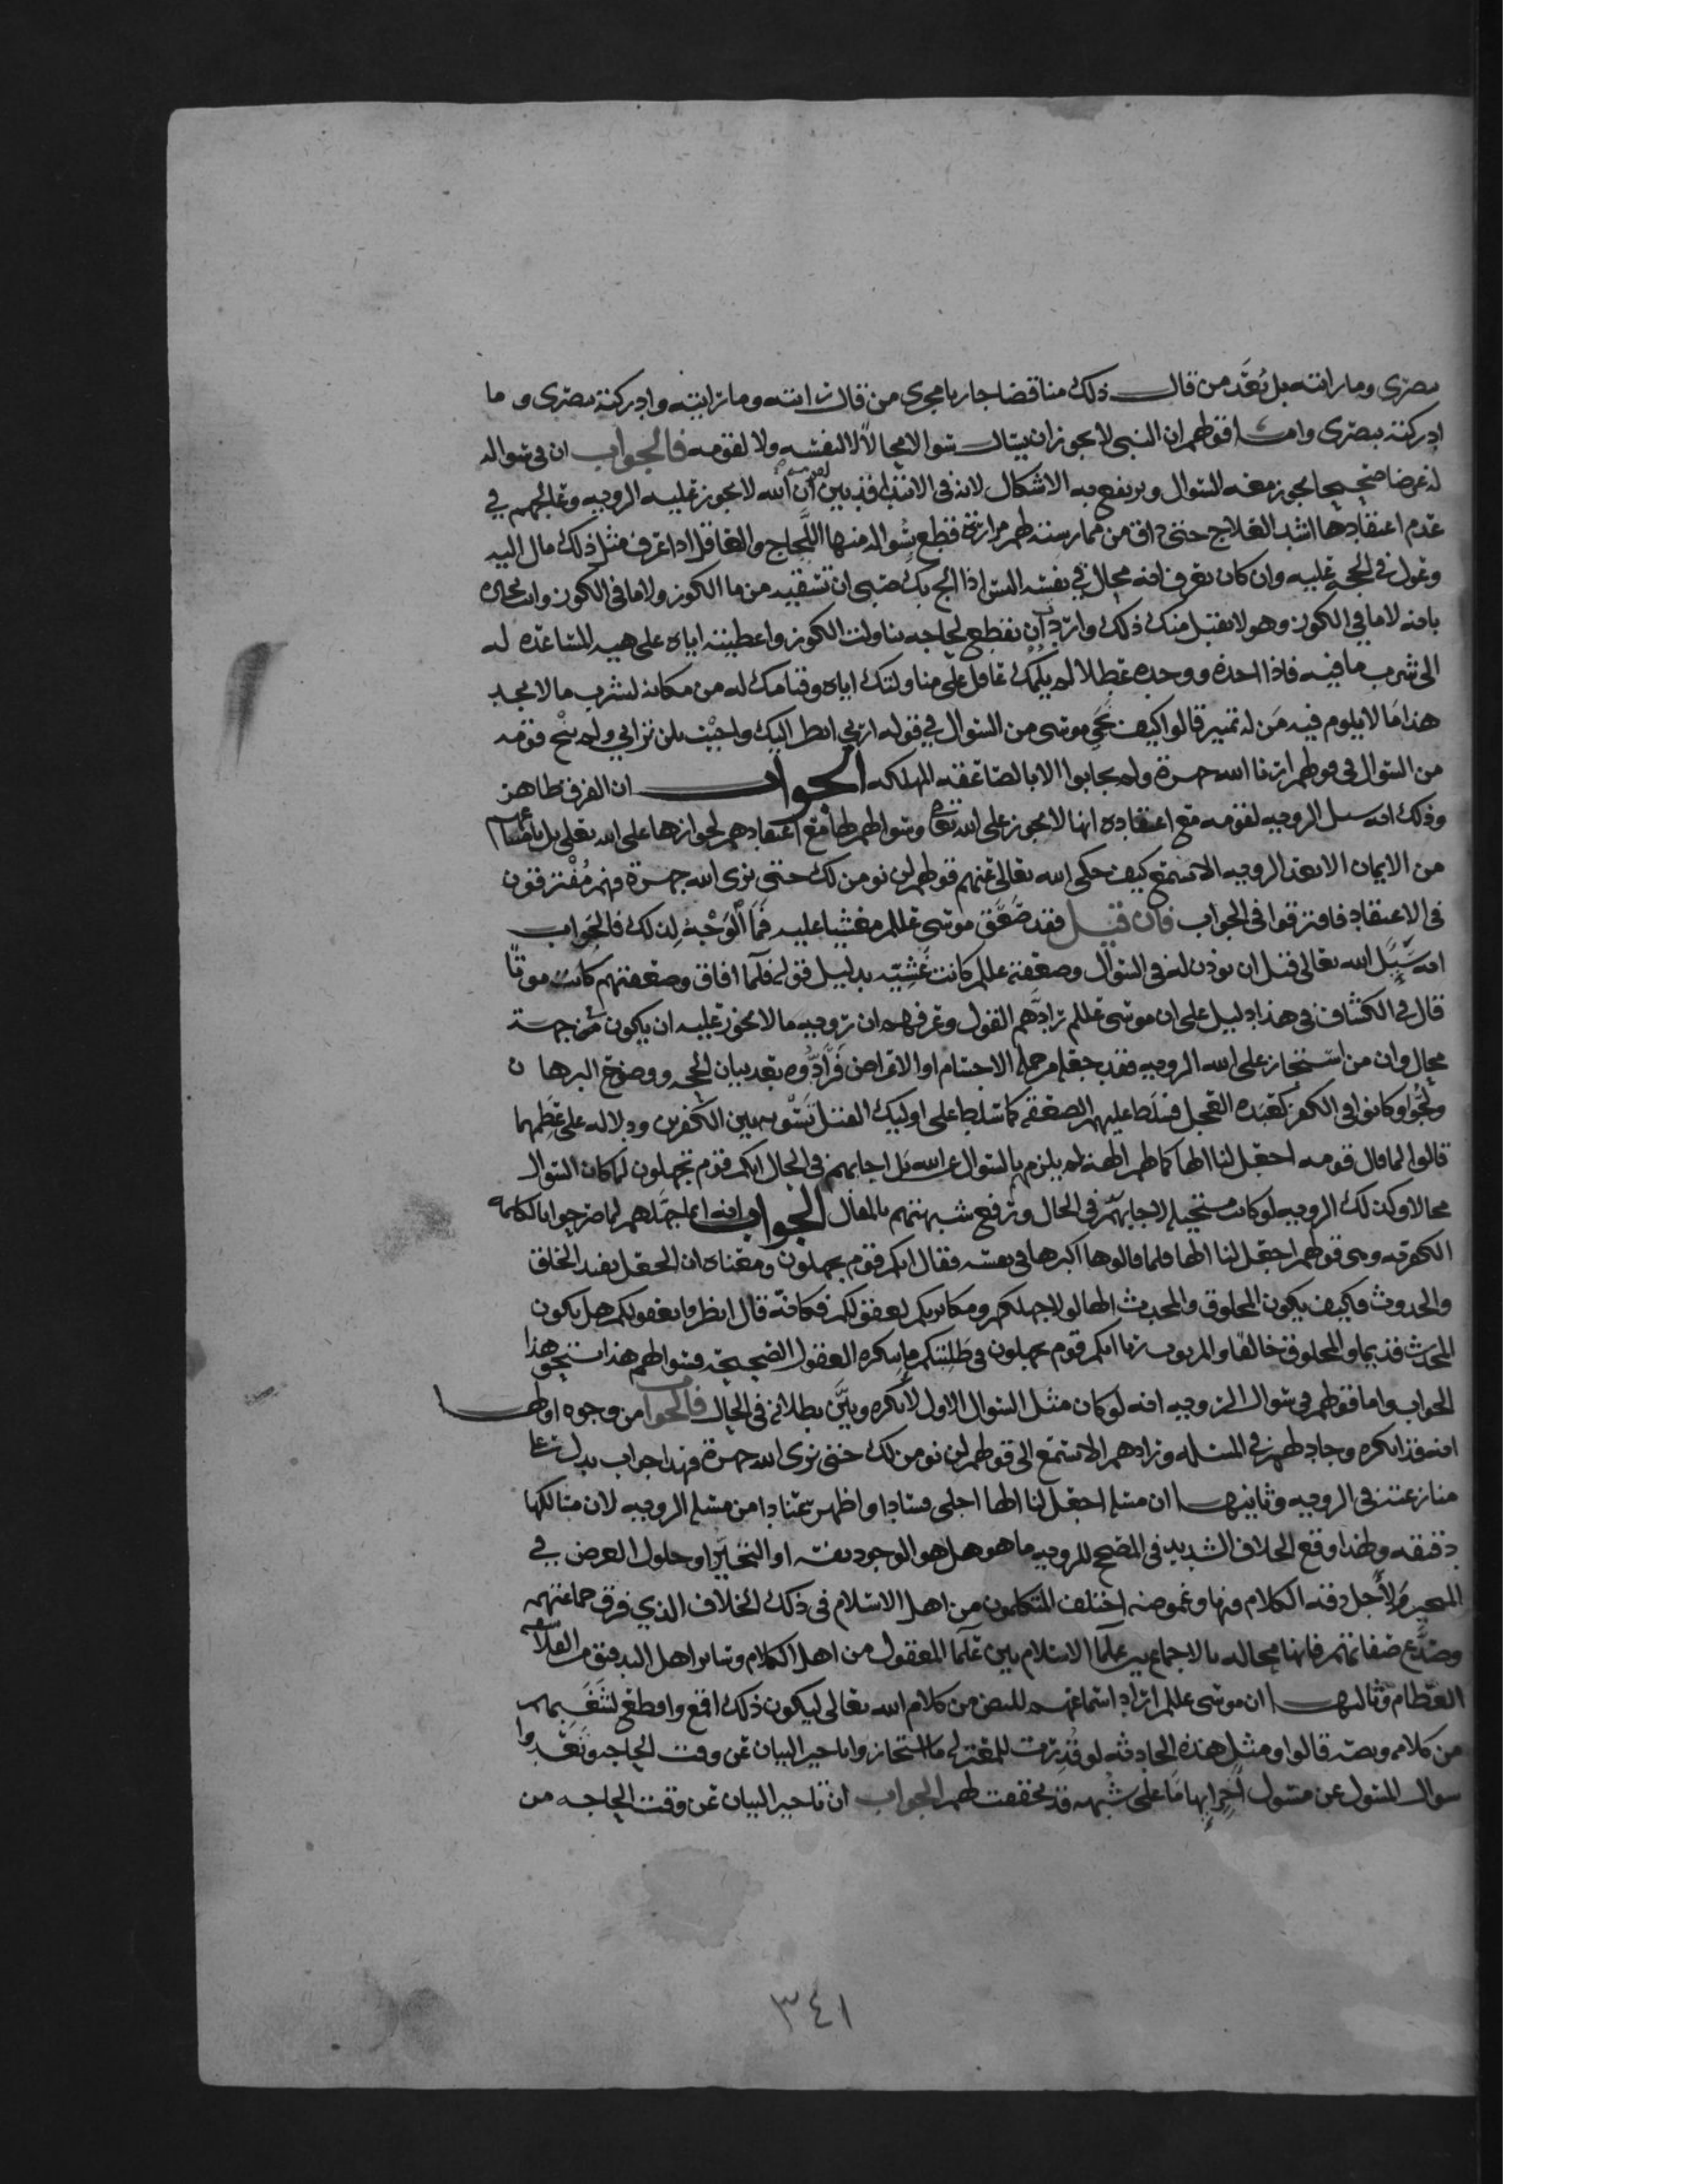 ببصري وما رايته بل يُعَدّ من قال ذلك مناقضا جاريا مجرى من قال رايته وما رايته وادركته ببصري وما
ادركته ببصري واما قولهم ان النبي لا يجوز ان يسال سوالا محالاً لا لنفسه ولا لقومه فالجواب ان في سواله
له غرضا صحيحا يجوز معه السوال ويرتفع به الاشكال لانه في الابتدا قد بين لقومه ان الله لا يجوز عليه الرويه وعالجهم في
عدم اعتقادها اشد العلاج حتى ذاق من ممارستهم مرارة فقطع بسواله منها اللجاج والعاقل اذا عرف مثل ذلك مال اليه
وعول في الحجه عليه وان كان يعرف انه محال في نفسه الستَ اذا الح بك صبي ان تسقيه من ما الكوز ولا ما في الكوز وانت تخبره
بانه لا ما في الكوز وهو لا يقبل منك ذلك واردت ان تقطع لجاجه ناولت الكوز واعطيته اياه على هيه المساعده له
الى شرب ما فيه فاذا اخذه ووجده عطلا لم يلمك عاقل على مناولتك اياه وقيامك له من مكانه لشرب ما لا يجد
هذا ما لا يلوم فيه مَن له تمييز قالوا كيف نجي موسى من السوال في قوله ارني انظر اليك واجيْب بلن تراني ولم ينج قومه
من السوال في قولهم ارنا الله جهرة ولم يجابوا الا بالصاعقه المهلكه الجواب ان الفرق ظاهر
وذلك انه سال الرويه لقومه مع اعتقاده انها لا يجوز على الله تعالى وسوالهم لها مع اعتقادهم لجوازها على الله تعالى بل
من الايمان الا بعد الرويه الا تسمع كيف حكى الله تعالى عنهم قولهم لن نومن لك حتى نرى الله جهرة فهم مُفترقون
في الاعتقاد فافترقوا في الجواب فان قيل فقد صَعق موسى عللم مغشيا عليه فما الوَجْهُ لذلك فالجواب
انه سَال الله تعالى قبل ان يوذن له في السوال وصعقته عللم كانت غَشيّه بدليل قوله فلمّا افاق وصعقتهم كانت موتًا
قال في الكشاف في هذا دليل على ان موسى عللم رادّهم القول وعرفهم ان رويه ما لا يجوز عليه ان يكون في جهة
محال وان من استجاز على الله الرويه فقد جعله من جمله الاجسام او الاعراض فَرَادّوه بعد بيان الحجه ووضوح البرهان
ولجّوا وكانوا في الكفر كعبَده العجل فسلط عليهم الصعقه كما سَلط على اوليك القتل تَسْويه بين الكفرين ودلاله على عِظَمهما
قالوا لما قال قومه اجعل لنا الها كما لهم الهه لم يلزمهم بالسوال عن الله بل اجابهم في الحال انكم قوم تجهلون لما كان السوال
محالا وكذلك الرويه لو كانت مستحيله لاجابهم في الحال ورفع شبهتهم بالمقال الجواب انه انما جهّلهم لما صرحوا بالكلمه
الكفريه وهي قولهم اجعل لنا الها فلما قالوها اكبرها في نفسه فقال انكم قوم تجهلون ومعناه ان الجعل يفيد الخلق
والحدوث فكيف يكون المخلوق والمحدث الها لولا جهلكم ومكابرتكم لعقولكم فكانّه قال انظروا بعقولكم هل يكون
المحدث قديما والمخلوق خالقًا والمربوب ربا انكم قوم تجهلون في طلبتكم ما تنكره العقول الصحيحه فسوالهم هذا يستحق هذا
الجواب واما قولهم في سوال الرويه انه لو كان مثل السوال الاول لانكره وبيَّن بطلانه في الحال فالجواب من وجوه اولها
انه قد انكره وجادلهم في المسله ورادهم الا تسمع الى قولهم لن نومن لك حتى نرى الله جهرة فهذا جواب يدل على
منازعته في الرويه وثانيها ان مسله اجعل لنا الها اجلى فسادا واظهر عنادا من مسله الرويه لان مسالكها
دقيقه ولهذا وقع الخلاف الشديد في المصحح للرويه ما هو هل هو الوجود نفسه او التحيّز او حلول العرض في
المتحيز ولاجل دقه الكلام فيها وغموضه اختلف المتكلمون من اهل الاسلام في ذلك الخلاف الذي فرق جماعتهم
وصَدَّع صفاتهم فانها محاله بالاجماع بين علما الاسلام بين علما المعقول من اهل الكلام وساير اهل التدقيق من العلما
العظام وثالثها ان موسى عللم اراد استماعهم للنص من كلام الله تعالى ليكون ذلك اقنع واقطع لشَغَبهم
من كلامه ونصه قالوا ومثل هذه الحادثه لو قُدِرت للمعتزله ما استجازوا تاخير البيان عن وقت الحاجه وتعدوا
سوال المسول عن مسول اخر ابهاما على شبهه قد تحققت لهم الجواب ان تاخير البيان عن وقت الحاجه من
٣٤١